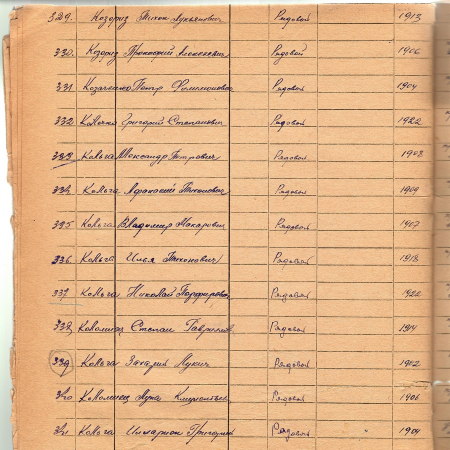 329. Козориз Тихон Лукьянович Рядовой 1913
330. Козориз Прокофий Алексеевич Рядовой 1906
331 Козаченко Петр Филимонович Рядовой 1904
332 Григорий Степанович Рядовой 1922
333 Кольга Александр Петрович Рядовой 1903
334 Кольга Афанасий Тихонович Рядовой 1909
335 Кольга Владимир Макарович Рядовой 1907
336 Кольга Илья Тихонович Рядовой 1918
337 Кольга Николай Порфирович Рядовой 1922
338 Коломиец Степан Гаврилов Рядовой 1914
339 Кольга Захарий Лукич Рядовой 1902
340 Коломиец Лука Рядовой 1906
341 Кольга Илларион Григорьев Рядовой 1904